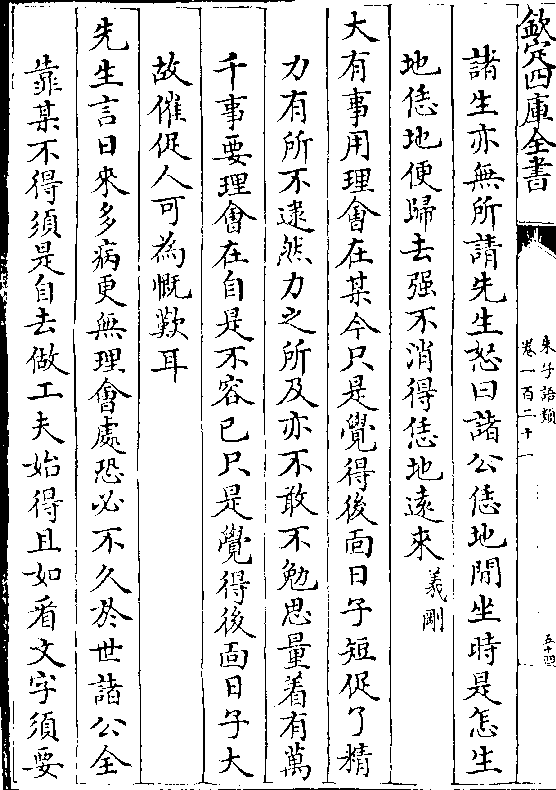 欽定四庫全書
朱子語類
卷一百二十一
五十四
諸生亦無所請先生怒曰諸公恁地閒坐時是怎生
地恁地便歸去强不消得恁地遠來義剛
大有事用理會在某今只是覺得後面日子短促了精
力有所不逮然力之所及亦不敢不勉思量着有萬
千事要理會在自是不容已只是覺得後面日子大
故催促人可為慨歎耳
先生言日來多病更無理會處恐必不久於世諸公全
靠某不得須是自去做工夫始得且如看文字須要